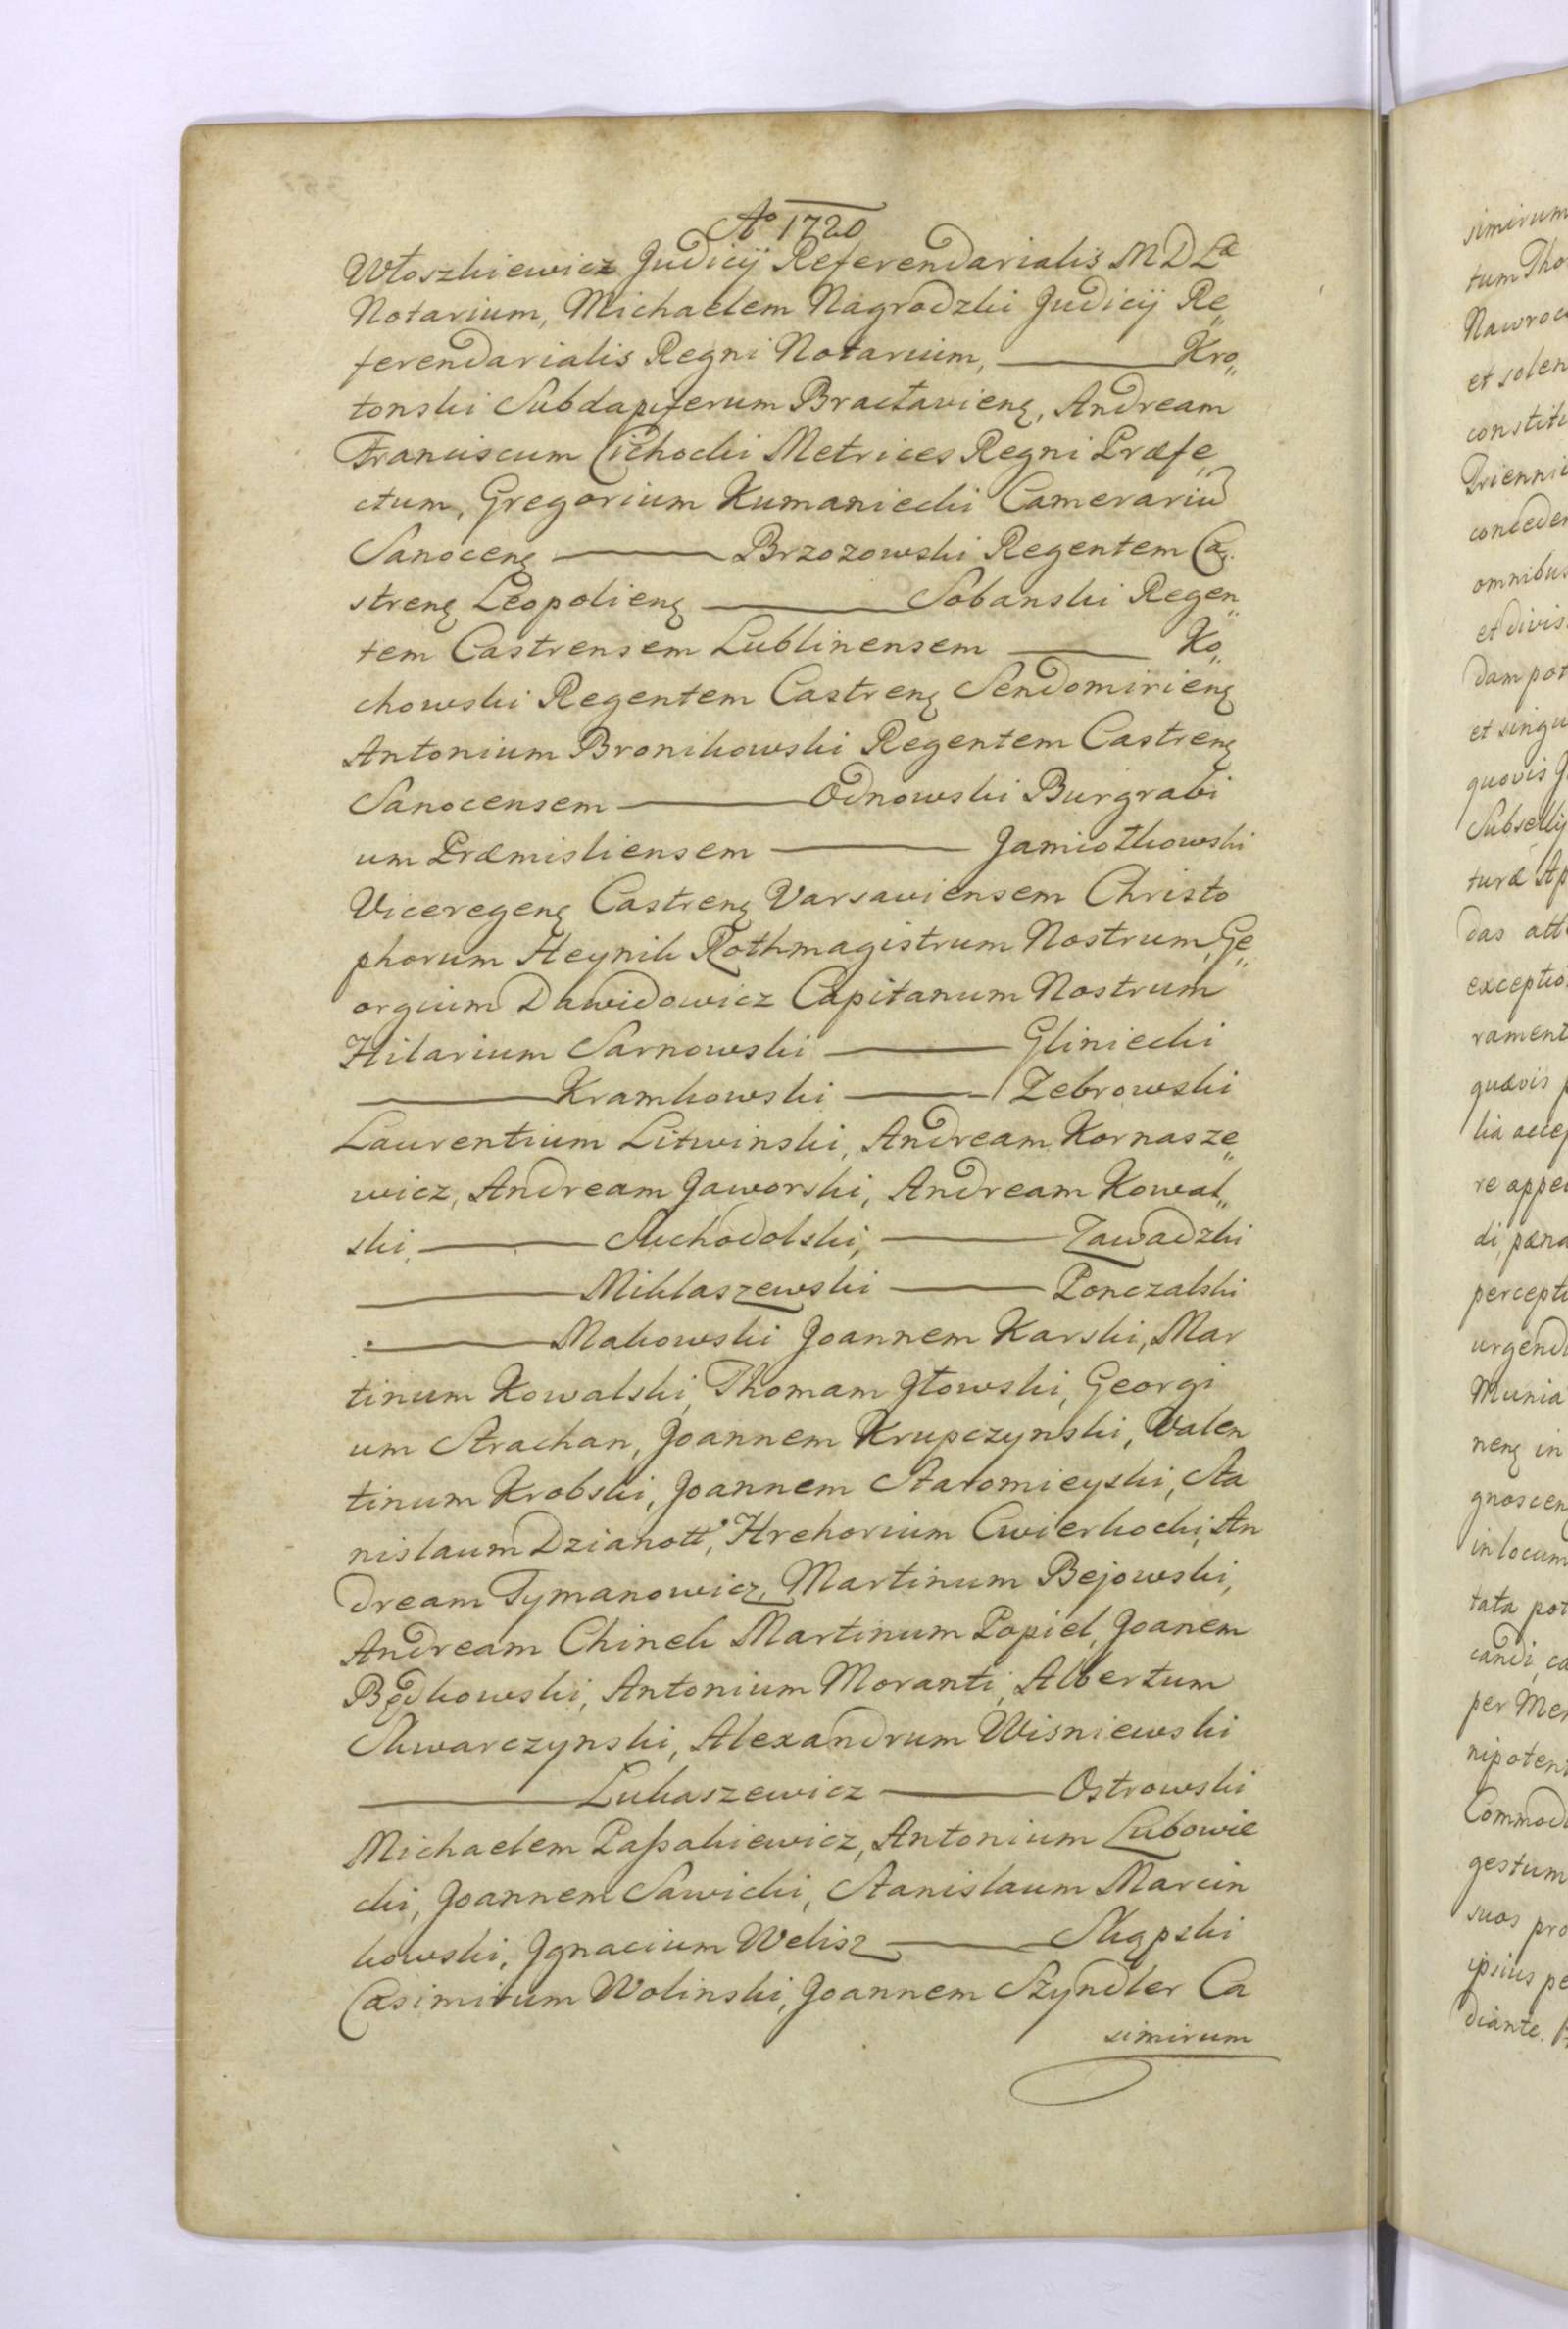 Aº 1720
Włoszkiewicz Judicij Referendarialis M D La
Notarium, Michaelem Nagrodzki Judicij Re„
ferendarialis Regni Notarium, ——— Kro„
tonski Subdapiferum Bractavieng, Andream
Franciscum Cichocki Metrices Regni Præfe„
ctum, Gregorium Kumaniecki Camerariu
Sanoceng ——— Brzozowski Regentem Ca„
streng Leopolieng ——— Sobanski Regen„
tem Castrensem Lublinensem ——— Ko„
chowski Regentem Castreng Sendomirieng
Antonium Bronikowski Regentem Castreng
Sanocensem ——— Odnowski Burgrabi
um Præmisliensem ——— Jamiołkowski
Viceregeng Castreng Varsaviensem Christo
phorum Heynik Rothmagistrum Nostrum, Ge„
orgium Dawidowicz Capitanum Nostrum
Hilarium Sarnowski ——— Gliniecki
——— Kramkowski ——— Zebrowski
Laurentium Litwinski, Andream Kornasze„
wicz, Andream Jaworski, Andream Kowal„
ski, ——— Suchodolski, ——— Zawadzki
——— Miklaszewski ——— Ponczalski
——— Makowski Joannem Karski, Mar
tinum Kowalski, Thomam Głowski, Georgi
um Strachan, Joannem Krupczynski, Valen
tinum Krobski, Joannem Staromieyski, Sta
nislaum Dzianott, Hrehorium Cwierkocki, An
dream Tymanowicz, Martinum Bejowski,
Andream Chinek Martinum Popiel, Joanem
Będkowski, Antonium Moranti, Albertum
Skwarczynski, Alexandrum Wisniewski
——— Lukaszewicz ——— Ostrowski
Michaelem Paſsakiewicz, Antonium Lubowie
cki, Joannem Sawicki, Stanislaum Marcin
kowski, Jgnacium Welisz ——— Skąpski
Casimirum Wolinski, Joannem Szyndler Ca
simirum
simirum
tum Tho
Nawroc
et solen
constitu
conceden
omnibus
et divis
dam pot
et singu
quovis J
Subselly
turæ Ap
das att
exceptio
rament
quævis p
lia accep
re appel
di, pæna
percepti
urgend
Munia
neng in
gnoscen
in locum
tata pot
candi, ca
per Me
nipoten
Commod
gestum
suos pro
ipsius pe
diante.